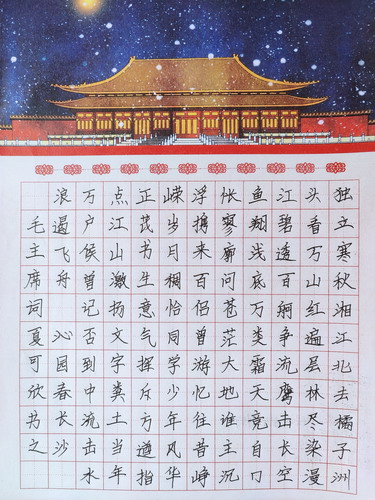 独立寒秋湘江北去橘子洲
头看万山红遍层林尽染漫
江碧透百舸争流鹰击长空
鱼翔浅底万类霜天竞自
怅寥廓问苍茫大地谁主沉
浮携来百侣曾游忆往昔峥
嵘岁月稠恰同学少年风华
正茂书生意气挥斥方遒指
点江山激扬文字粪土当年
万户侯曾记否到中流击水
浪遏飞舟 沁园春长沙
毛主席词夏可欣书之